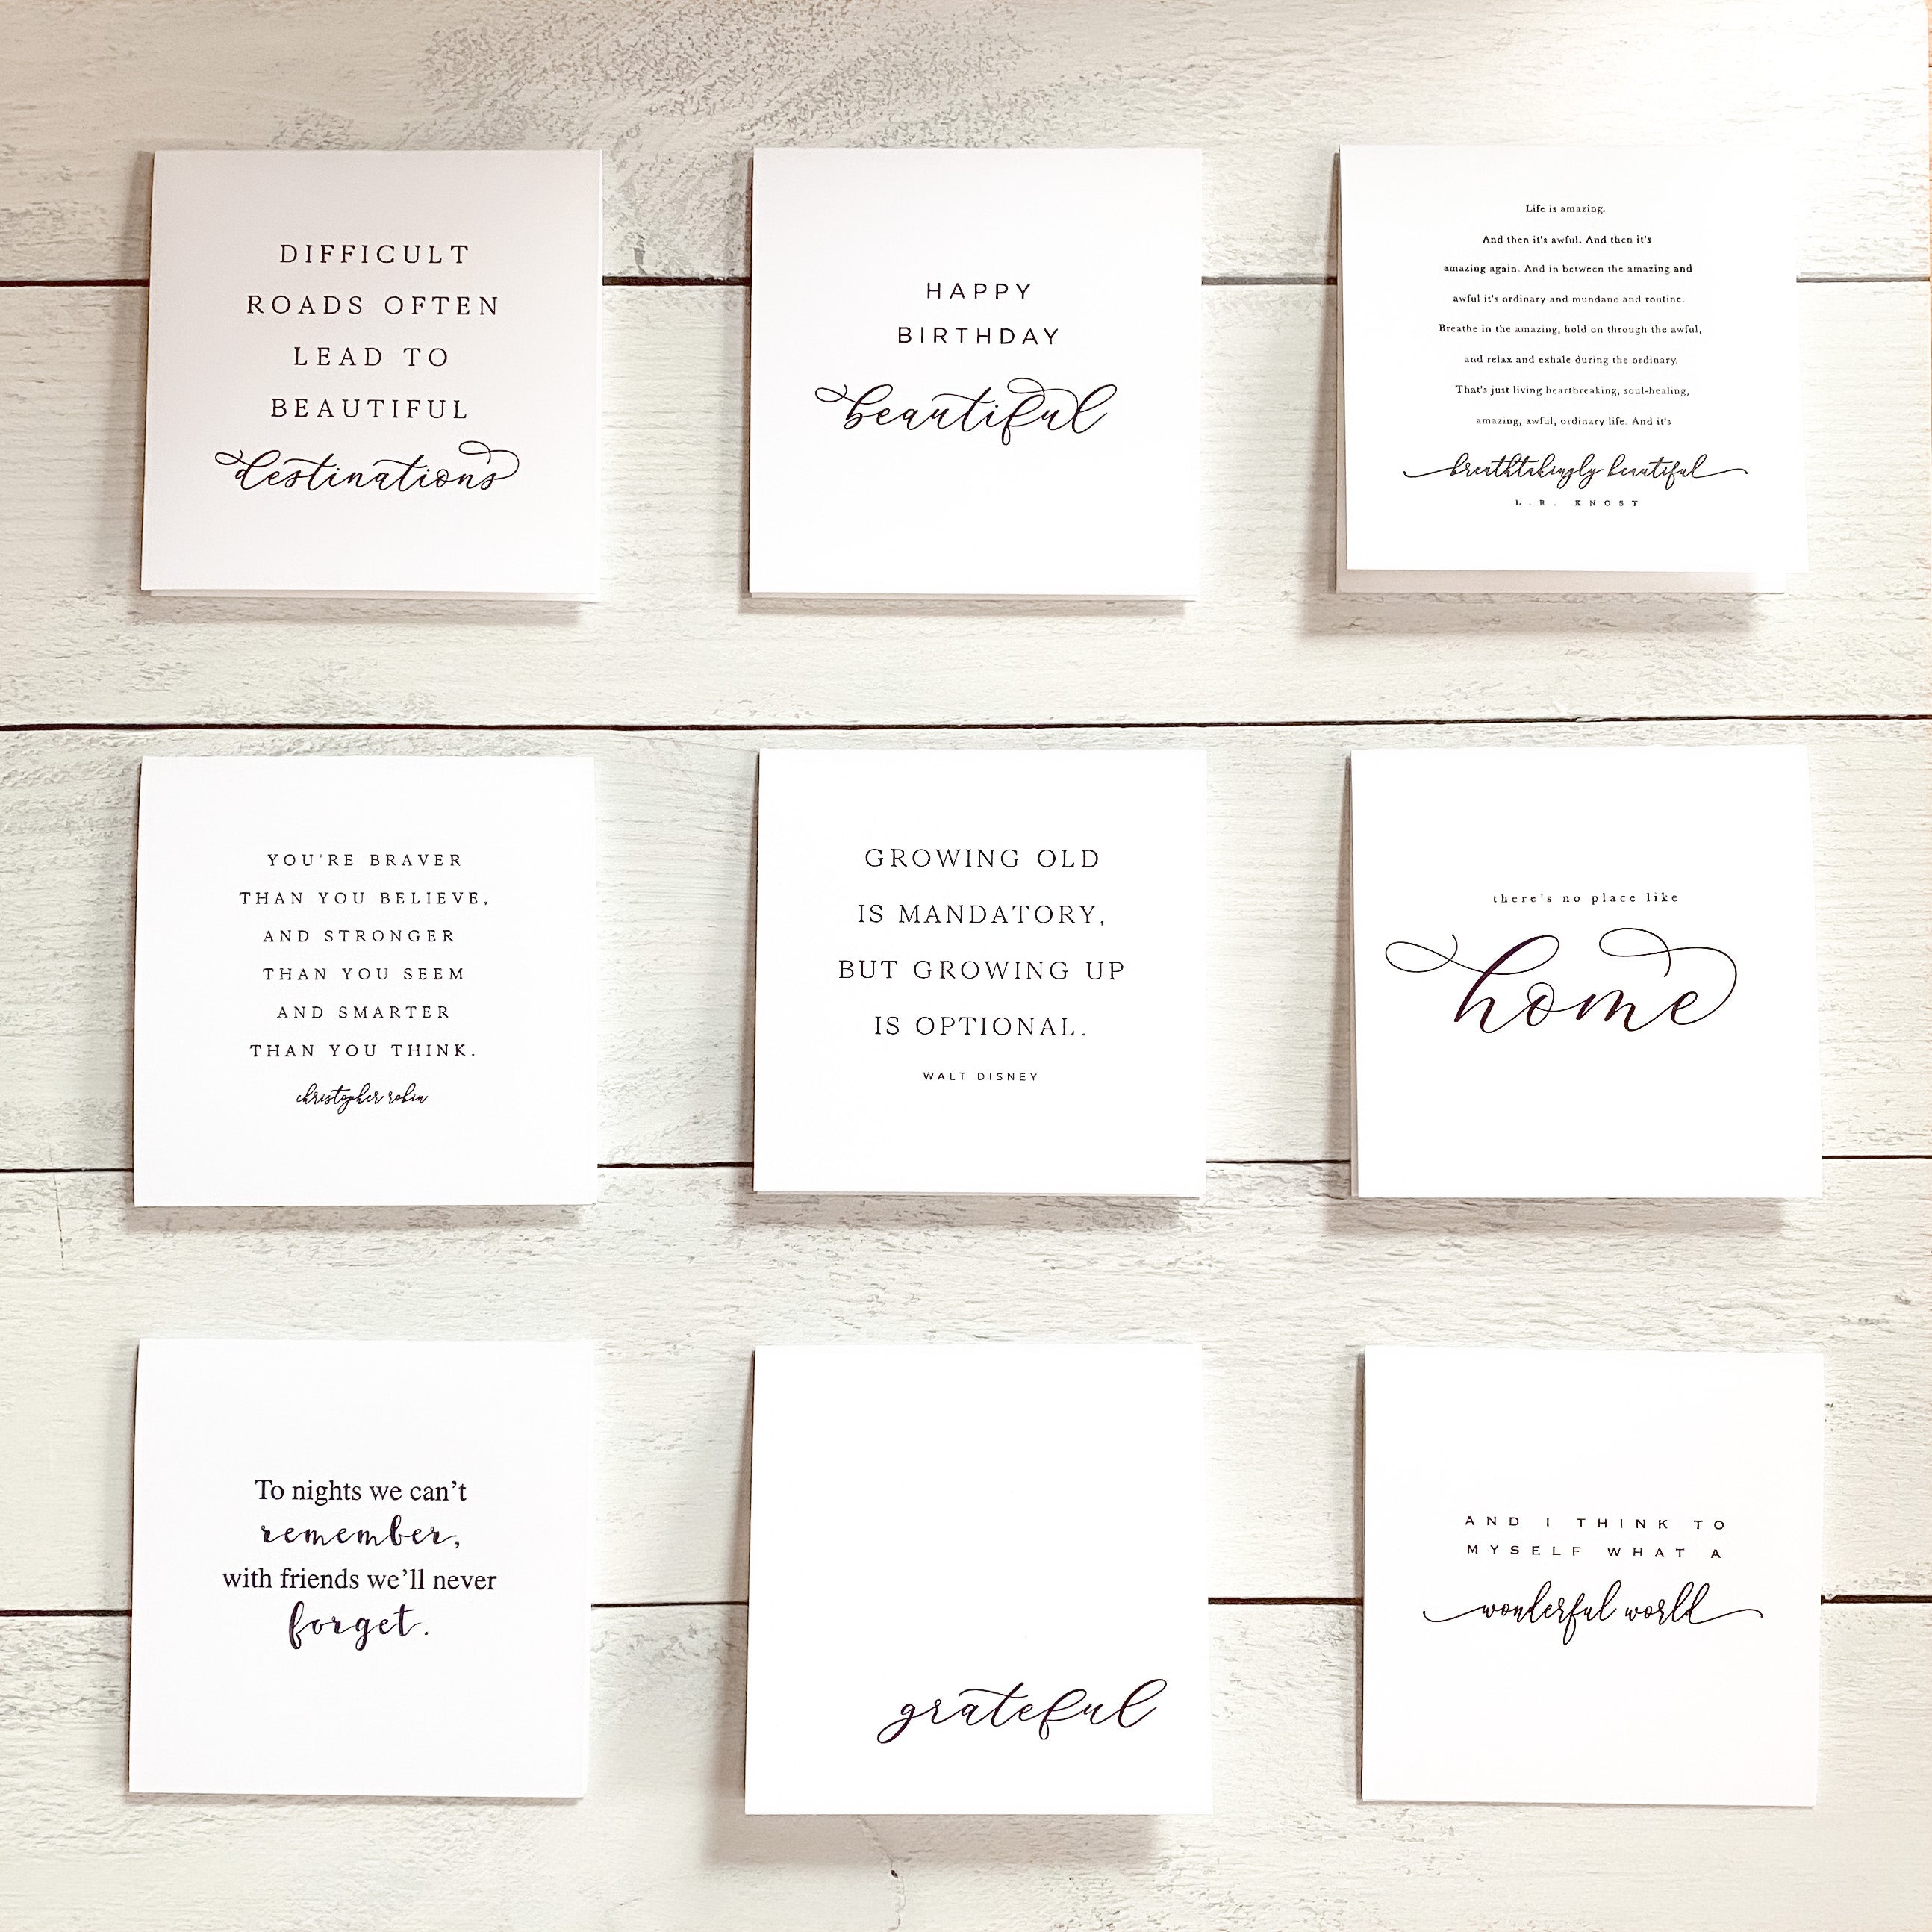 DIFFICULT
ROADS OFTEN
LEAD TO
BEAUTIFUL
destinations
HAPPY
BIRTHDAY
beautiful
Life is amazing.
And then it's awful. And then it's
amazing again. And in between the amazing and
awful it's ordinary and mundane and routine.
Breathe in the amazing, hold on through the awful,
and relax and exhale during the ordinary.
That's just living heartbreaking, soul-healing,
amazing, awful, ordinary life. And it's
breathtakingly beautiful
L.R. KNOST
YOU'RE BRAVER
THAN YOU BELIEVE,
AND STRONGER
THAN YOU SEEM
AND SMARTER
THAN YOU THINK.
christopher robin
GROWING OLD
IS MANDATORY,
BUT GROWING UP
IS OPTIONAL.
WALT DISNEY
there's no place like
home
To nights we can't
remember,
with friends we'll never
forget.
grateful
AND I THINK TO
MYSELF WHAT A
wonderful world